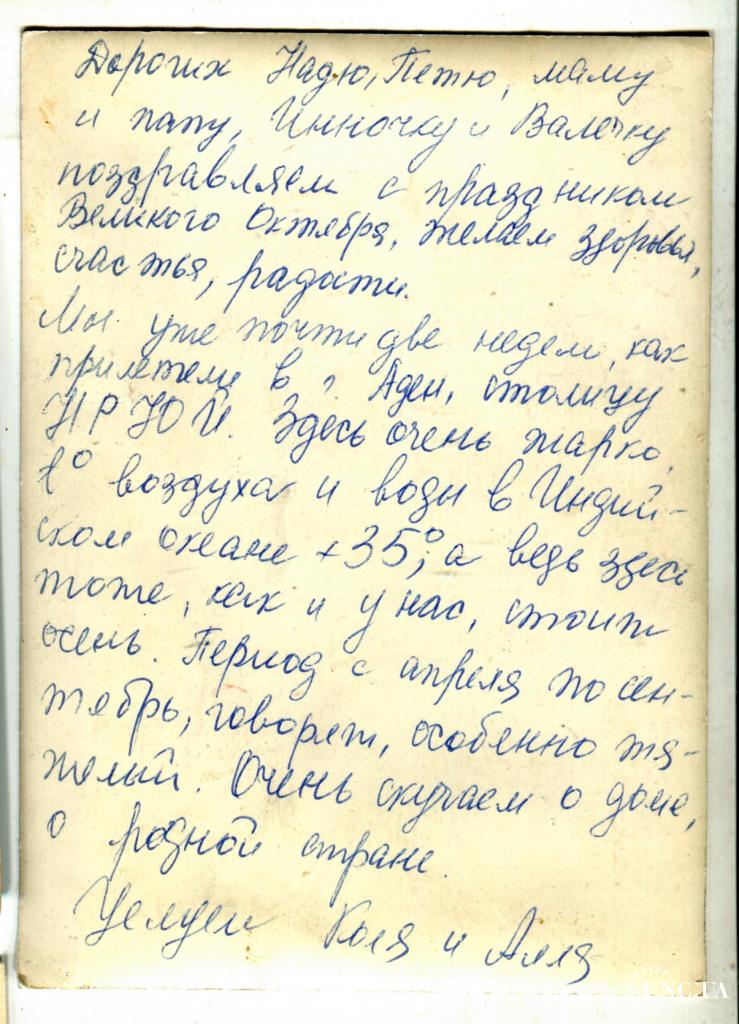 Дорогих Надю, Петю, маму
и папу, Инночку и Валечку
поздравляем с праздником
Великого Октября, желаем здоровья,
счастья, радости.
Мы уже почти две недели, как
прилетели в г. Аден, столицу
НРЮЙ. Здесь очень жарко,
t° воздуха и воды в Индий-
ском океане +35°, а ведь здесь
тоже, как и у нас, стоит
осень. Период с апреля по сен-
тябрь, говорят, особенно тя-
желый. Очень скучаем о доме,
о родной стране.
Целуем Коля и Алля
UNC.UA